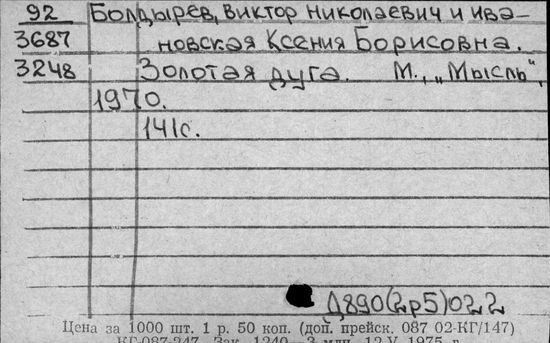 92 Болдырев, Виктор Николаевич и Ива-
3687 новская Ксения Борисовна.
3248 Золотая дуга. М., „Мысль“,
1970.
141с.
Д890(2р5)022
Цена за 1000 шт. 1 р. 50 коп. (доп. прейск. 087 02-КГ/147)
КГ-087-247. Зак. 1240—3 млн. 12.V.1975 г.